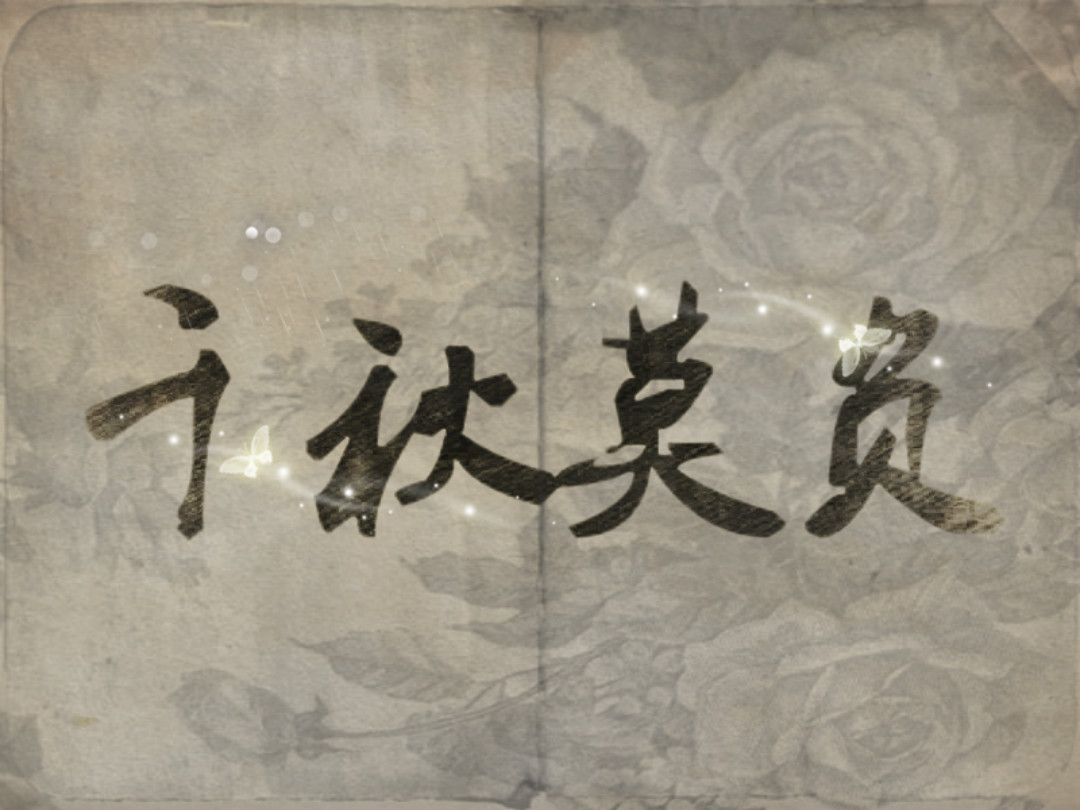 千秋莫负